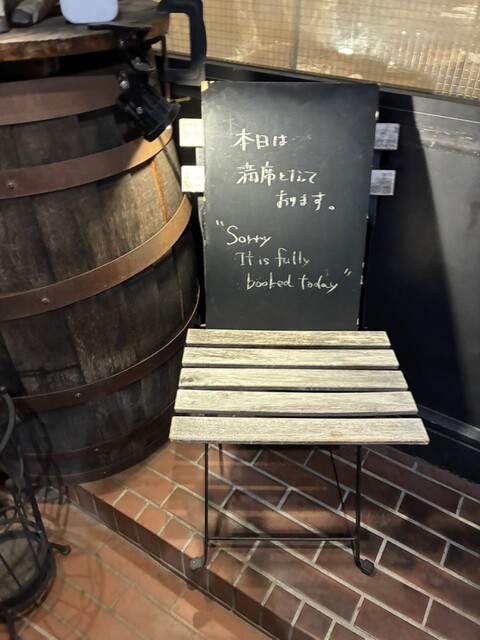 本日は
満席となって
おります。
"Sorry
It is fully
booked today"